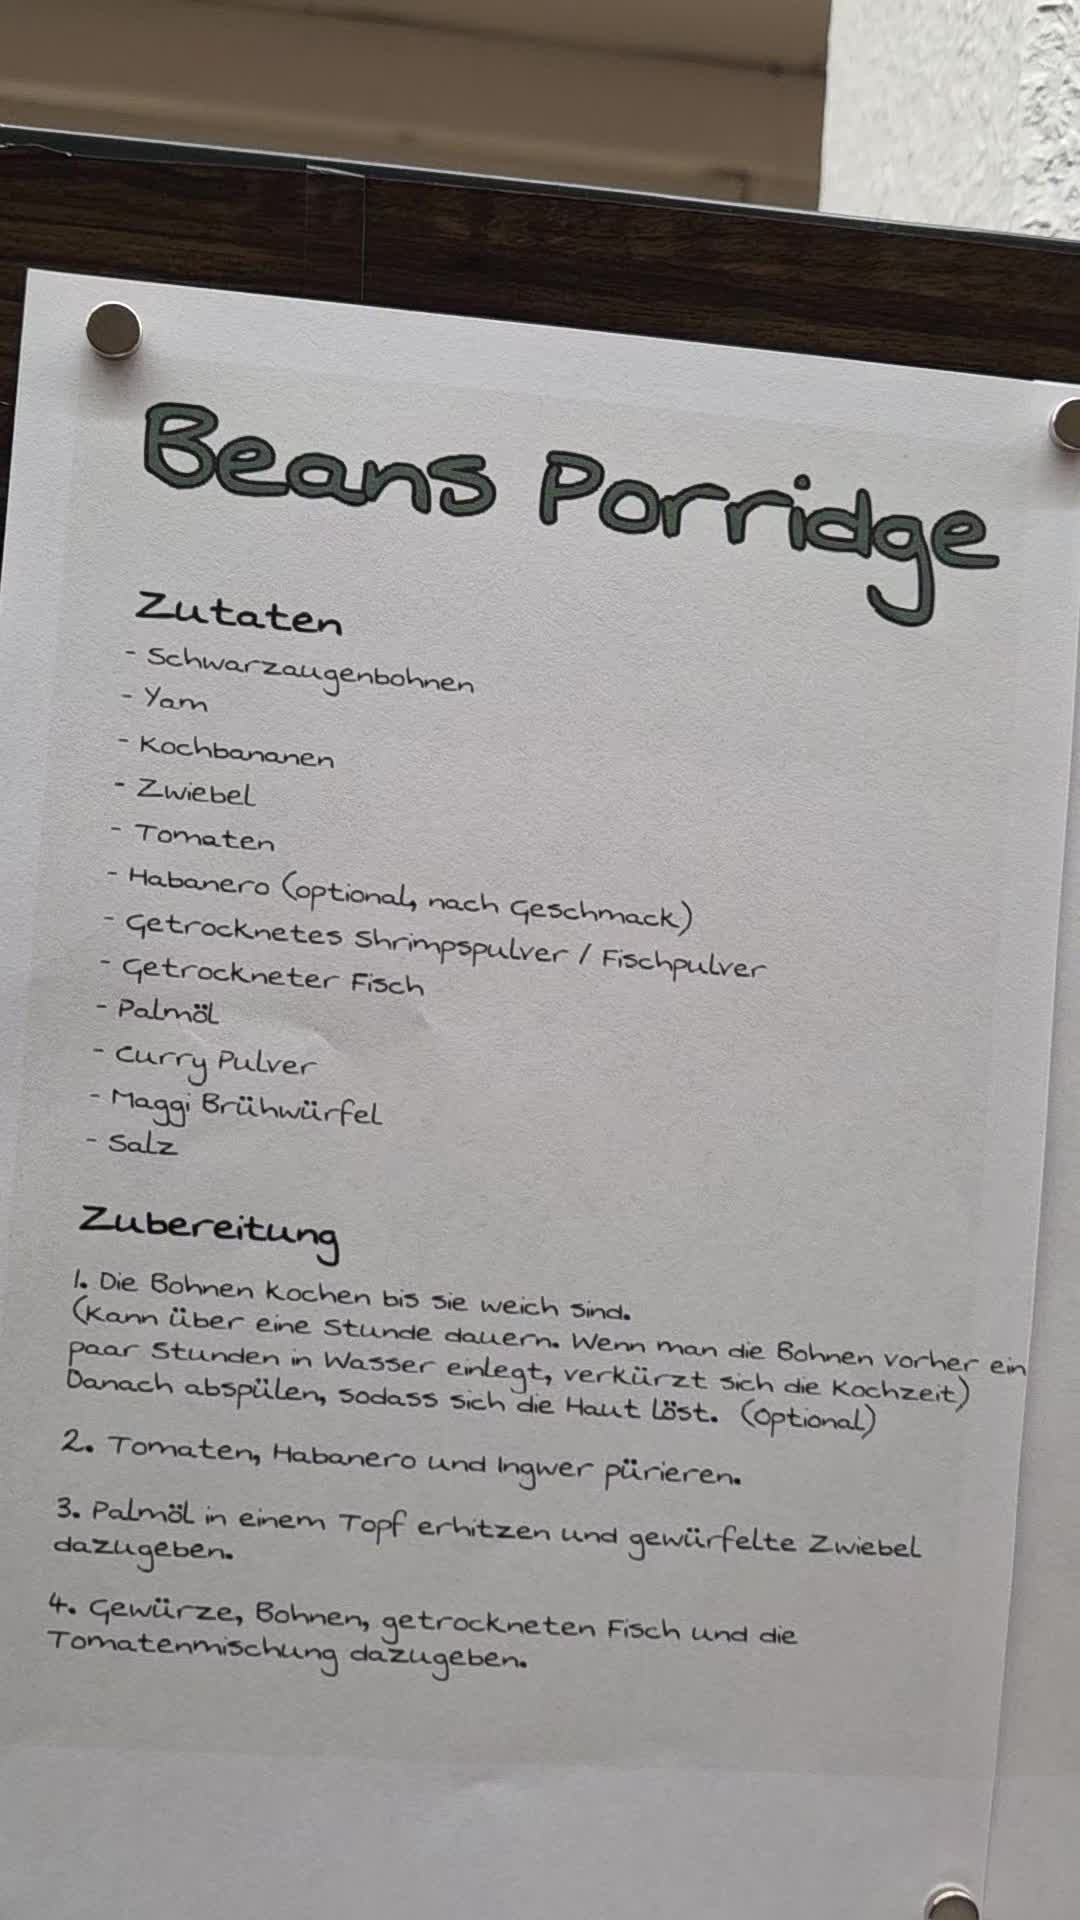 Beans Porridge
Zutaten
- Schwarzaugenbohnen
- Yam
- Kochbananen
- Zwiebel
- Tomaten
- Habanero (optional, nach Geschmack)
- Getrocknetes Shrimpspulver / Fischpulver
- Getrockneter Fisch
- Palmöl
- Curry Pulver
- Maggi Brühwürfel
- Salz
Zubereitung
1. Die Bohnen kochen bis sie weich sind.
(Kann über eine Stunde dauern. Wenn man die Bohnen vorher ein
paar Stunden in Wasser einlegt, verkürzt sich die Kochzeit)
Danach abspülen, sodass sich die Haut löst. (Optional)
2. Tomaten, Habanero und Ingwer pürieren.
3. Palmöl in einem Topf erhitzen und gewürfelte Zwiebel
dazugeben.
4. Gewürze, Bohnen, getrockneten Fisch und die
Tomatenmischung dazugeben.